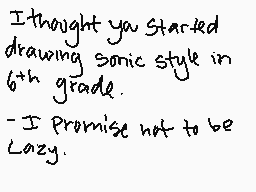 I thought you started
drawing sonic style in
6th grade.
- I Promise not to be
Lazy.